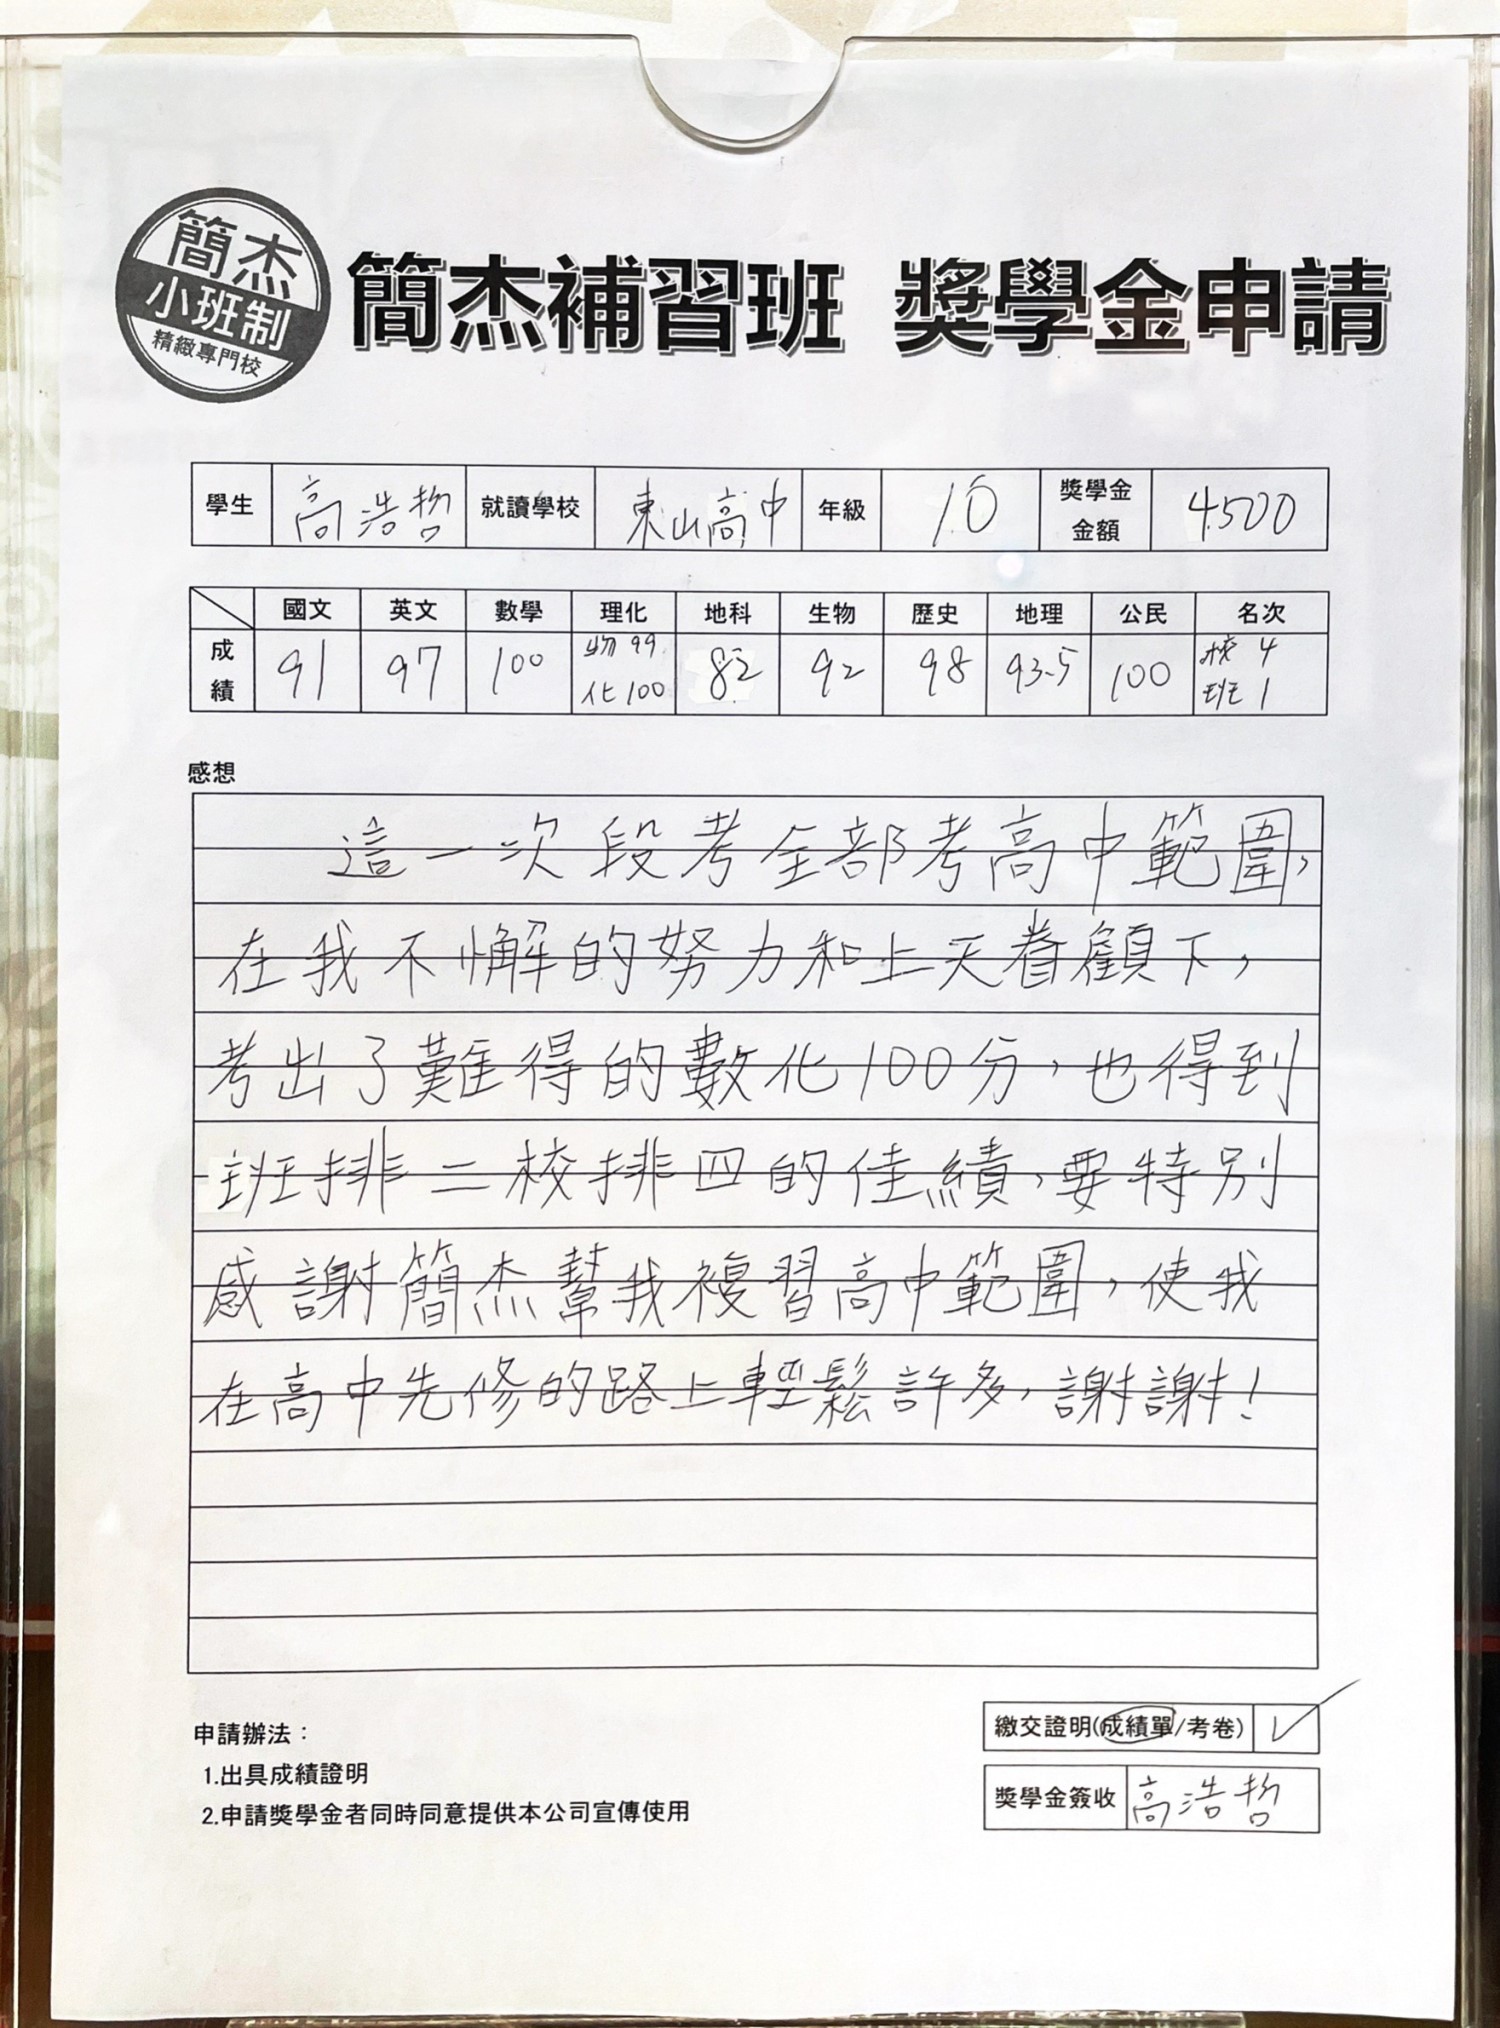 簡杰
小班制
精緻專門校
簡杰補習班 獎學金申請
學生 高浩哲 就讀學校 東山高中 年級 10 獎學金金額 4500
國文 英文 數學 理化 地科 生物 歷史 地理 公民 名次
成績 91 97 100 物99 化100 82 92 98 93.5 100 校4 班1
感想
這一次段考全部考高中範圍,
在我不懈的努力和上天眷顧下,
考出了難得的數化100分,也得到
班排二校排四的佳績,要特別
感謝簡杰幫我複習高中範圍,使我
在高中先修的路上輕鬆許多,謝謝!
繳交證明(成績單/考卷) ✓
獎學金簽收 高浩哲
申請辦法：
1.出具成績證明
2.申請獎學金者同時同意提供本公司宣傳使用